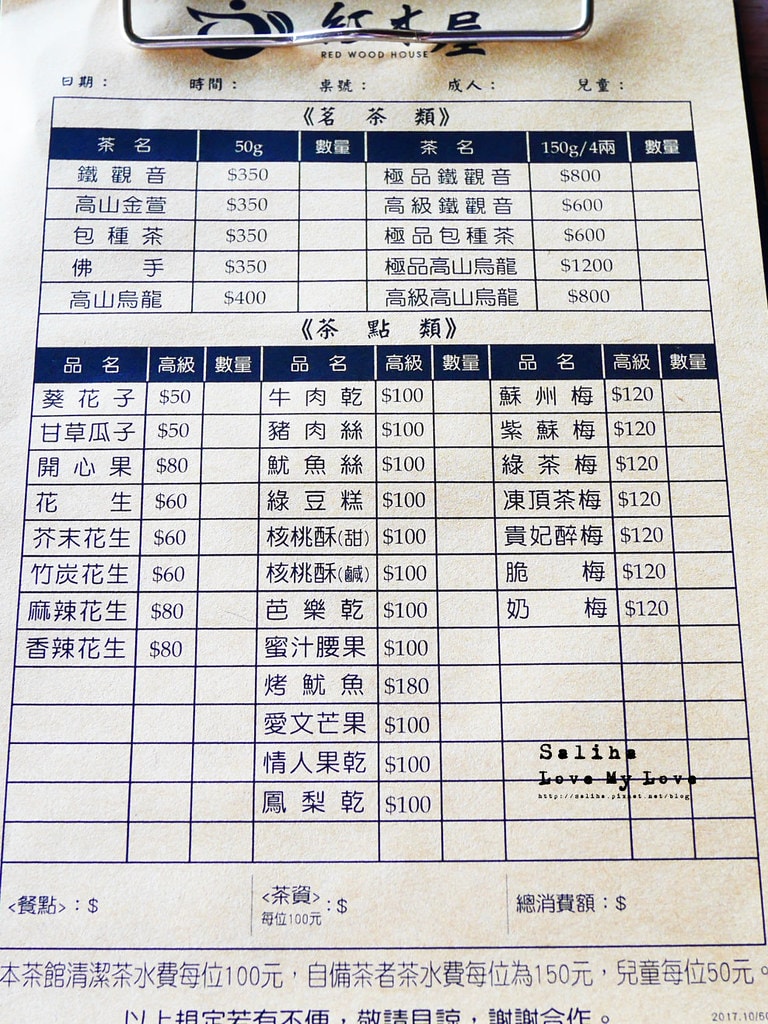 紅木屋
RED WOOD HOUSE
日期： 時間： 桌號： 成人： 兒童：
《茗茶類》
茶名 50g 數量 茶名 150g/4兩 數量
鐵觀音 $350 極品鐵觀音 $800
高山金萱 $350 高級鐵觀音 $600
包種茶 $350 極品包種茶 $600
佛手 $350 極品高山烏龍 $1200
高山烏龍 $400 高級高山烏龍 $800
《茶點類》
品名 高級 數量 品名 高級 數量 品名 高級 數量
葵花子 $50 牛肉乾 $100 蘇州梅 $120
甘草瓜子 $50 豬肉絲 $100 紫蘇梅 $120
開心果 $80 魷魚絲 $100 綠茶梅 $120
花生 $60 綠豆糕 $100 凍頂茶梅 $120
芥末花生 $60 核桃酥(甜) $100 貴妃醉梅 $120
竹炭花生 $60 核桃酥(鹹) $100 脆梅 $120
麻辣花生 $80 芭樂乾 $100 奶梅 $120
香辣花生 $80 蜜汁腰果 $100
烤魷魚 $180
愛文芒果 $100
情人果乾 $100
鳳梨乾 $100
Saliha
Love My Love
http://saliha.pixnet.net/blog
<餐點>：$ <茶資>：$ 總消費額：$
每位100元
本茶館清潔茶水費每位100元，自備茶者茶水費每位為150元，兒童每位50元。
以上規定若有不便，敬請見諒，謝謝合作。